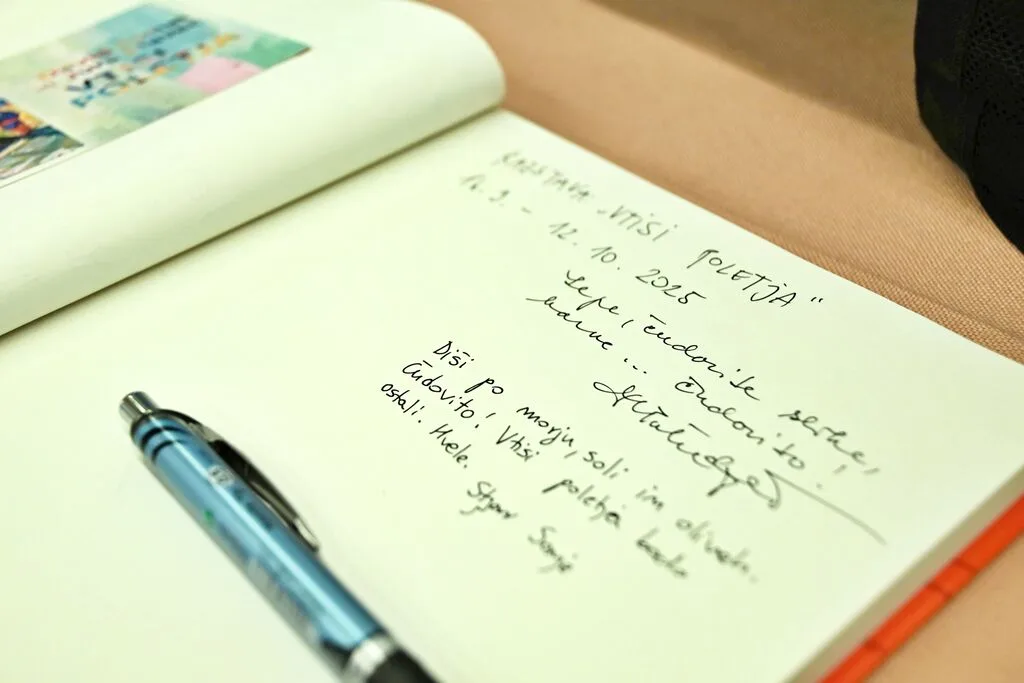 VTISI
POLETJA
RAZSTAVA „VTISI POLETJA“
12. 10. 2025
Lepe, čudovite slike,
barve... čudovito!
Diši po morju, soli in olivah.
Čudovito! Vtisi poletja bodo
ostali. Hvala.